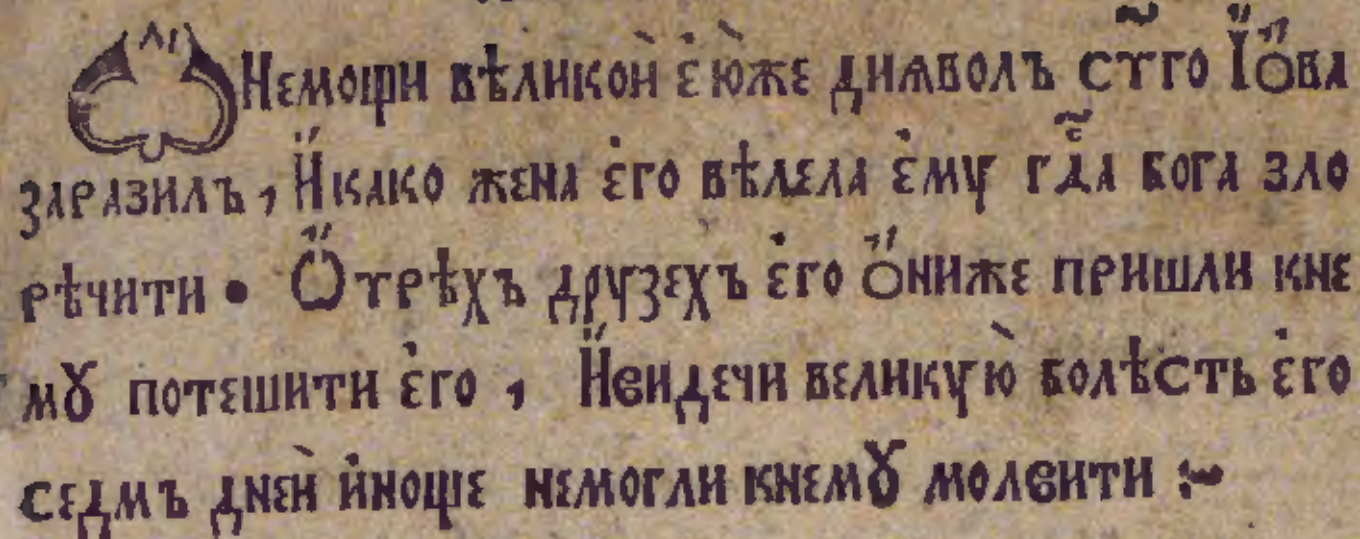 Ѡ Немощи вѣликои е҆юже диѧволъ ст҃го І҆ѡ҆ва
заразилъ, И҆како жена е҆го вѣлела е҆му гдⷭ҇а бога зло
рѣчити • Ѻ҆трѣхъ друзехъ е҆го ѻ҆ниже пришли кне
мꙋ потешити е҆го , И҆видечи великую̀ болѣсть е҆го
седмъ днеи̇ и҆ноще немогли кнемꙋ молвити :~